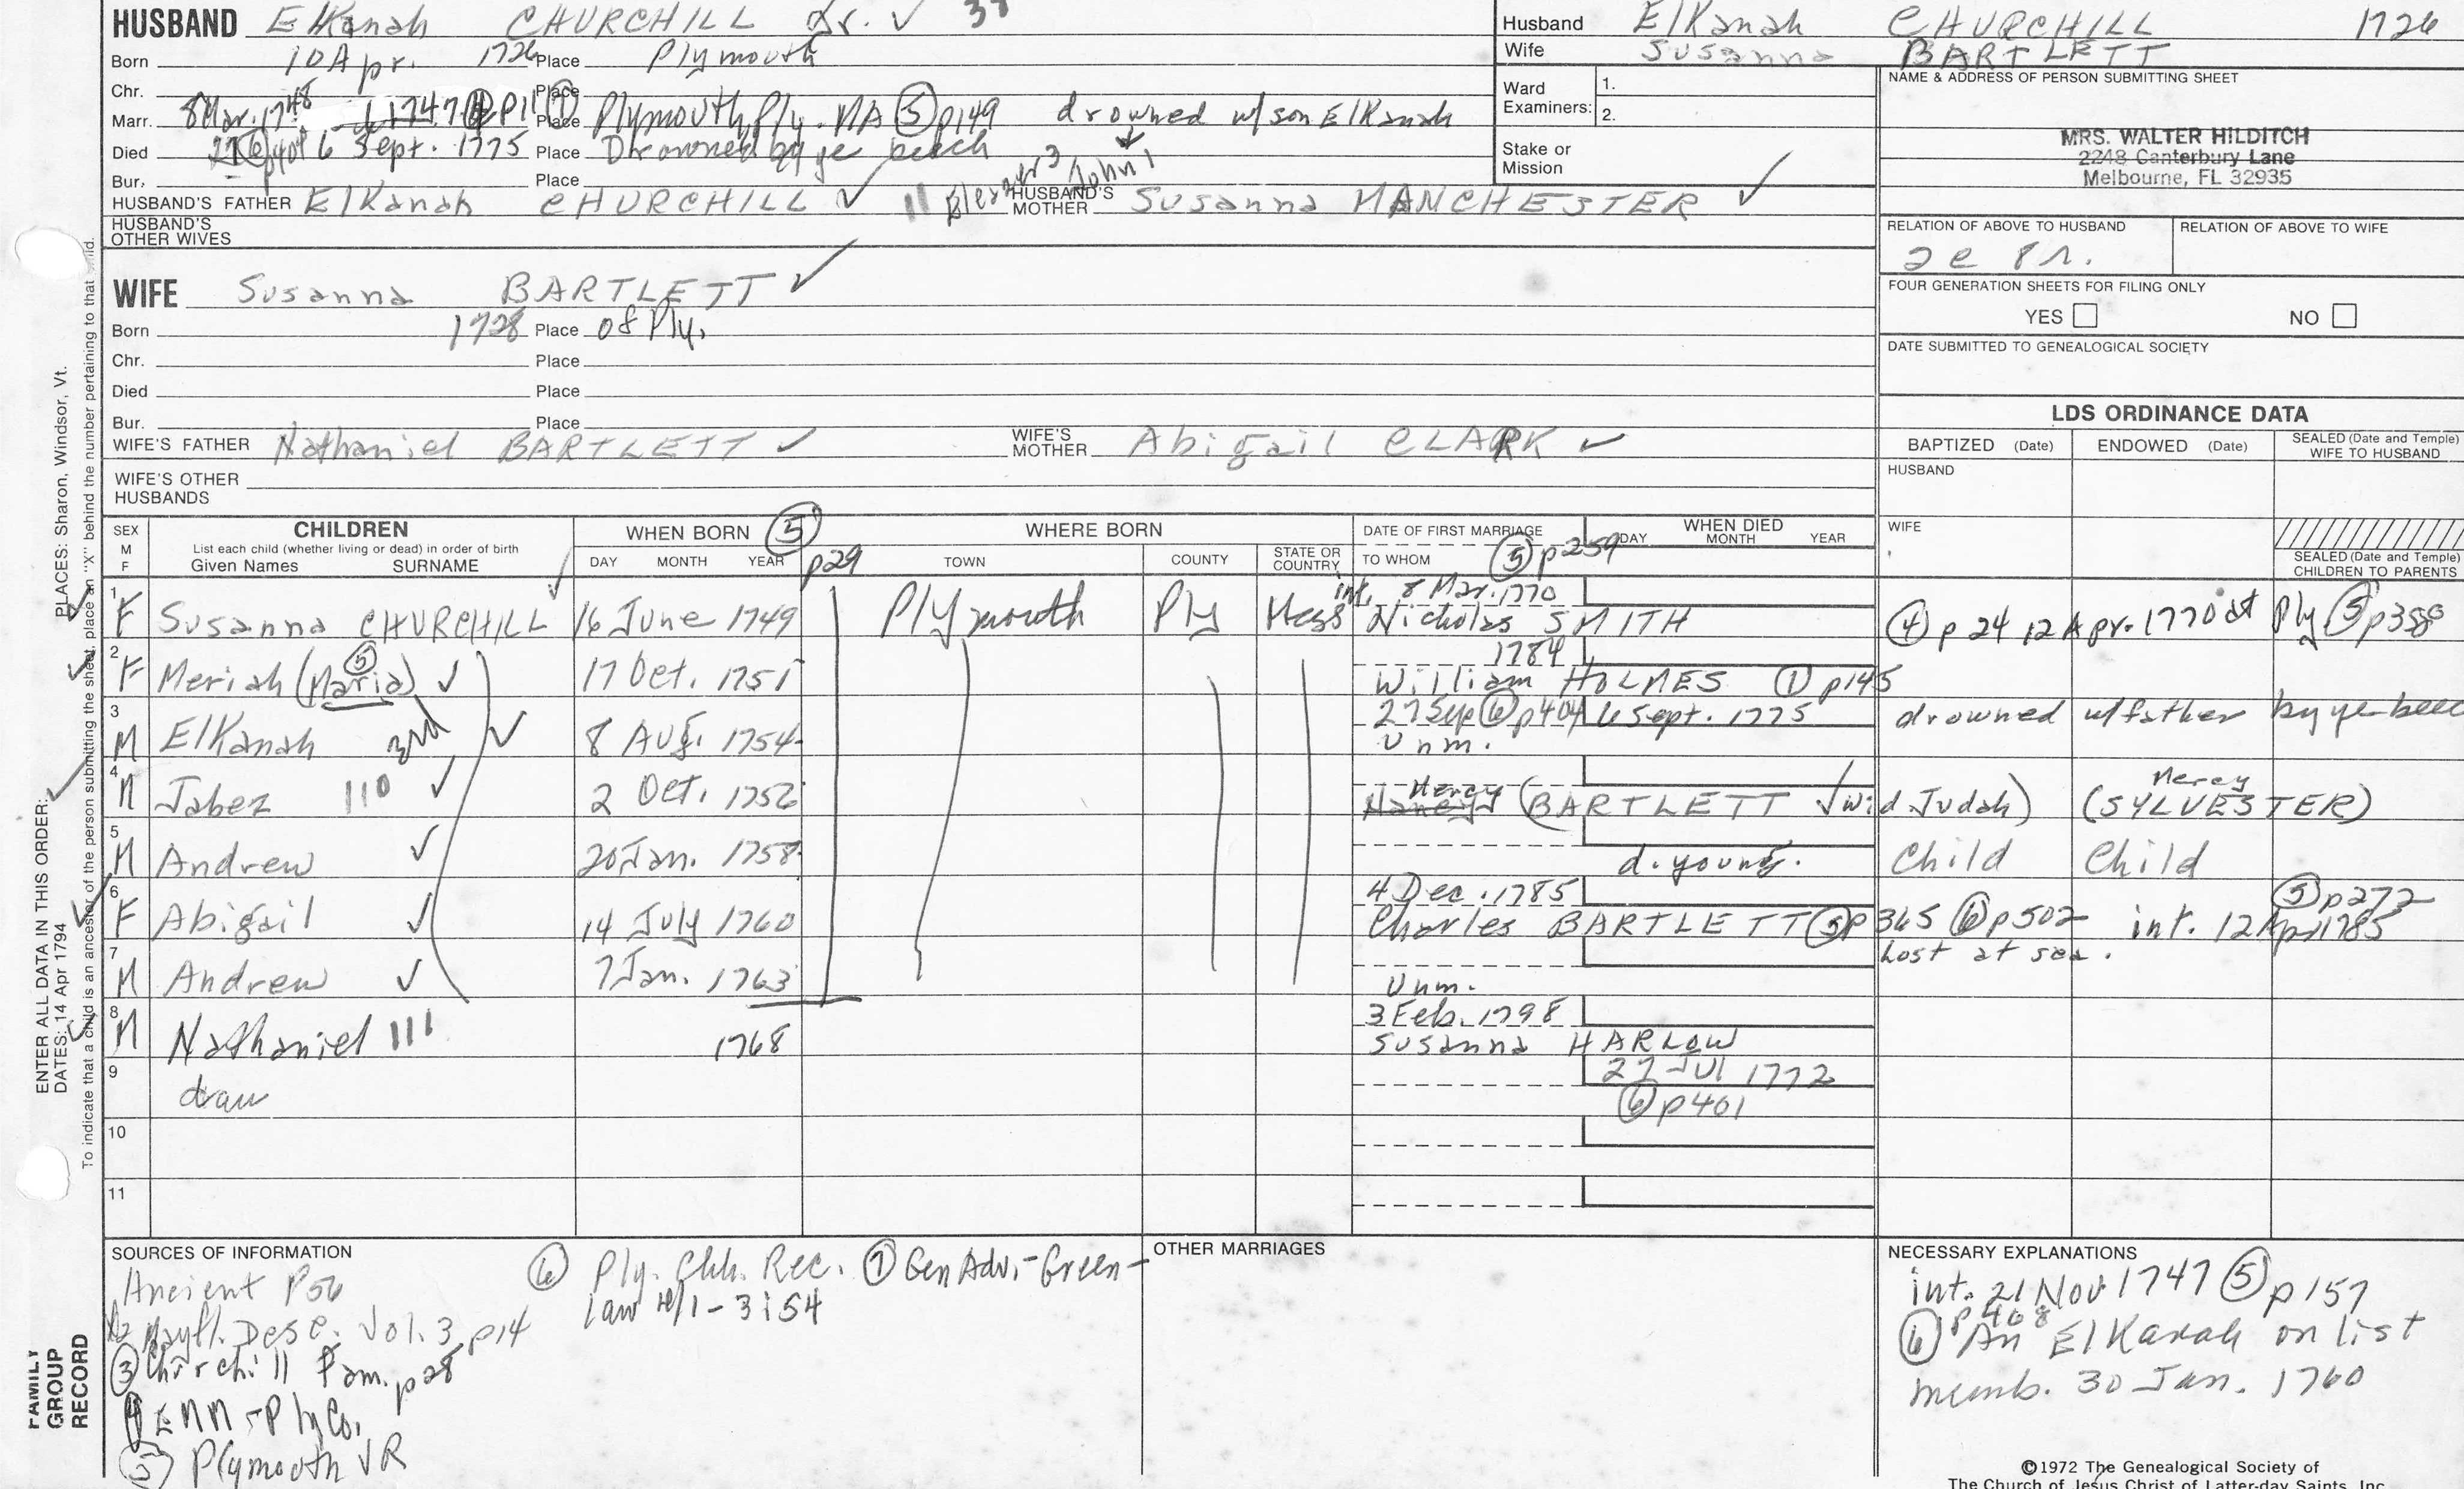 HUSBAND Elkanah CHURCHILL Jr. ✓
Born 10 Apr. 1726 Place Plymouth
Chr. Place
Marr. 8 Mar. 1748 1747 ④ p11 ⑦ Place Plymouth, Ply. MA ⑤ p149 drowned w/son Elkanah
Died 27 ⑥ p404 6 Sept. 1775 Place Drowned by ye beach
Bur. Place
HUSBAND'S FATHER Elkanah CHURCHILL ✓ 11 Eleazer3 John1 HUSBAND'S MOTHER Susanna MANCHESTER ✓
HUSBAND'S OTHER WIVES
Husband Elkanah CHURCHILL 1726
Wife Susanna BARTLETT
Ward Examiners: 1.
2.
Stake or Mission
NAME & ADDRESS OF PERSON SUBMITTING SHEET
MRS. WALTER HILDITCH
2248 Canterbury Lane
Melbourne, FL 32935
RELATION OF ABOVE TO HUSBAND
RELATION OF ABOVE TO WIFE
FOUR GENERATION SHEETS FOR FILING ONLY
YES NO
DATE SUBMITTED TO GENEALOGICAL SOCIETY
WIFE Susanna BARTLETT ✓
Born 1728 Place of Ply.
Chr. Place
Died Place
Bur. Place
WIFE'S FATHER Nathaniel BARTLETT ✓ WIFE'S MOTHER Abigail CLARK ✓
WIFE'S OTHER HUSBANDS
LDS ORDINANCE DATA
BAPTIZED (Date) ENDOWED (Date) SEALED (Date and Temple) WIFE TO HUSBAND
HUSBAND
WIFE
SEALED (Date and Temple) CHILDREN TO PARENTS
SEX M F
CHILDREN
List each child (whether living or dead) in order of birth
Given Names SURNAME
WHEN BORN ⑤ p29
DAY MONTH YEAR
WHERE BORN
TOWN COUNTY STATE OR COUNTRY
DATE OF FIRST MARRIAGE
TO WHOM ⑤ p259
WHEN DIED
DAY MONTH YEAR
int. 8 Mar. 1770
1 F Susanna CHURCHILL 16 June 1749 Plymouth Ply Mass Nicholas SMITH ④ p 24 12 Apr. 1770 at Ply ⑤ p388
1784
2 F Meriah (Maria) ⑤ ✓ 17 Oct. 1751 William HOLMES ① p145
27 Sep ⑥ p404 6 Sept. 1775 drowned w/father by ye
3 M Elkanah 3rd 8 Aug. 1754 Unm.
4 M Jabez 110 ✓ 2 Oct. 1756 Nancy Mercy (BARTLETT ✓ wid Judah) (Mercy SYLVESTER)
5 M Andrew ✓ 20 Jan. 1758 d. young. Child Child
4 Dec. 1785 ⑤ p272
6 F Abigail ✓ 14 July 1760 Charles BARTLETT ⑤ p365 ⑥ p502 int. 12 Apr 1785
Lost at sea.
7 M Andrew ✓ 7 Jan. 1763 Unm.
3 Feb. 1798
8 M Nathaniel 111 1768 Susanna HARLOW
27 Jul 1772
9 dau ⑥ p401
10
11
SOURCES OF INFORMATION
Ancient P56
Mayfl. Desc. Vol. 3 p14
③ Churchill Fam. p28
④ ENM - Ply Co.
⑤ Plymouth VR
⑥ Ply. Chh. Rec. ⑦ Gen Adv. - Green-
law 1 - 3:54
OTHER MARRIAGES
NECESSARY EXPLANATIONS
int. 21 Nov 1747 ⑤ p157
⑥ p468 An Elkanah on list
memb. 30 Jan. 1760
©1972 The Genealogical Society of
The Church of Jesus Christ of Latter-day Saints, Inc.
ENTER ALL DATA IN THIS ORDER:
DATES: 14 Apr 1794
PLACES: Sharon, Windsor, Vt.
To indicate that a child is an ancestor of the person submitting the sheet, place an "X" behind the number pertaining to that child.
FAMILY GROUP RECORD